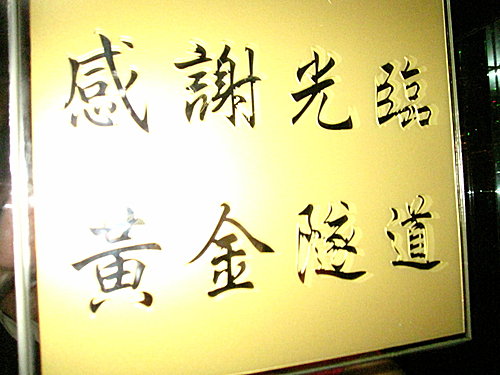 感謝光臨
黃金隧道